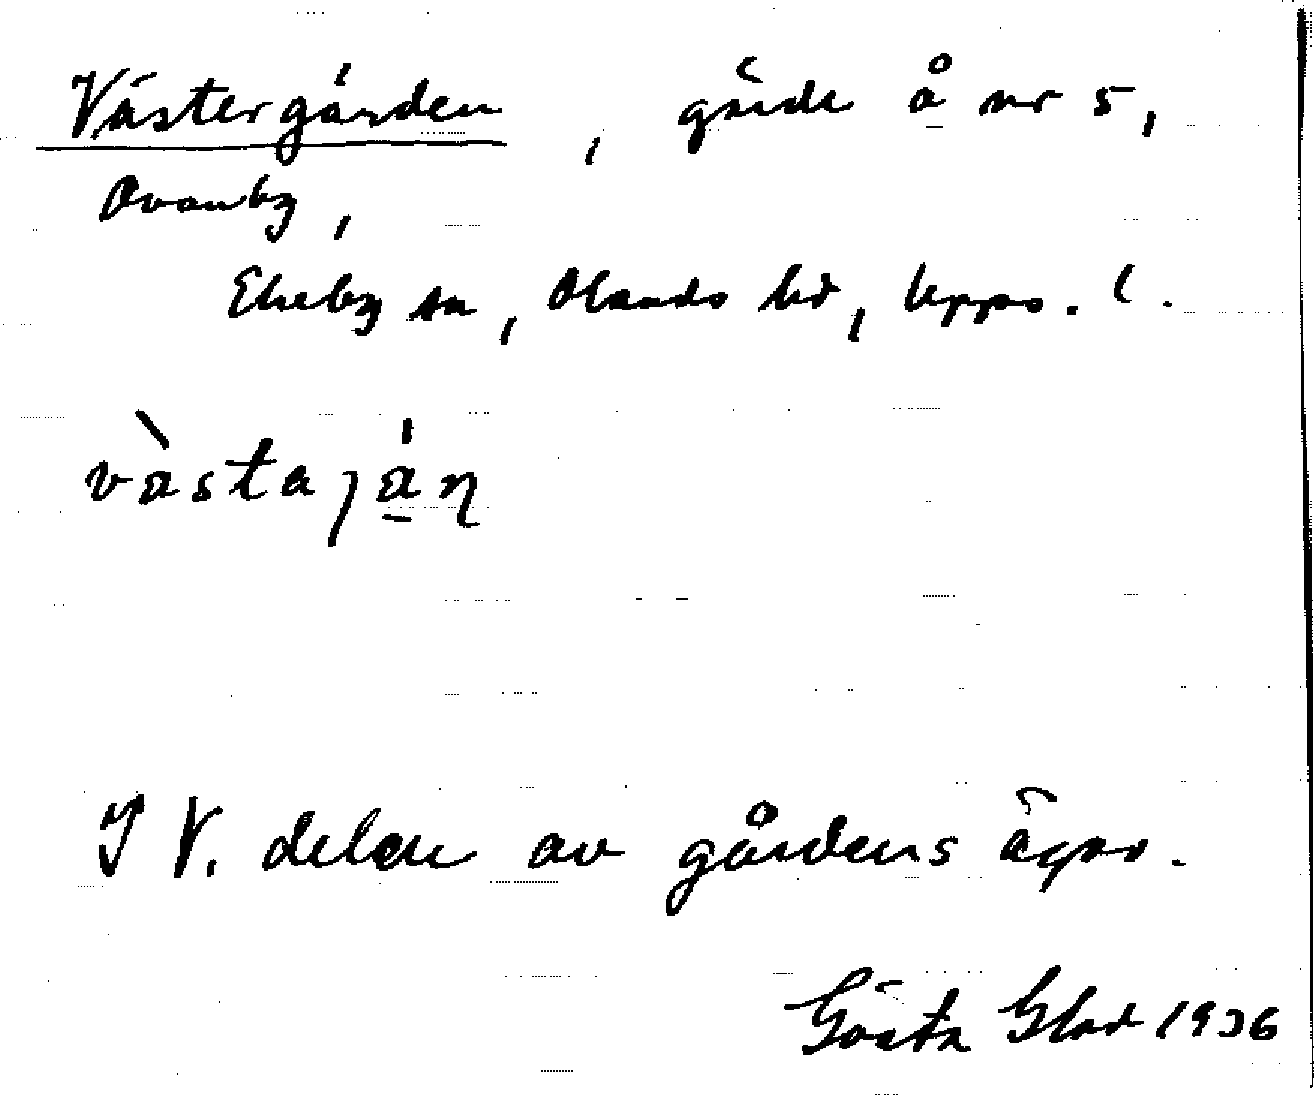 Västergården, gärde å nr 5,
Ovanby,
Ekeby sn, Olands hd, Upps. l.
vàstajån
I V. delen av gårdens ägor.
Gösta Glad 1936